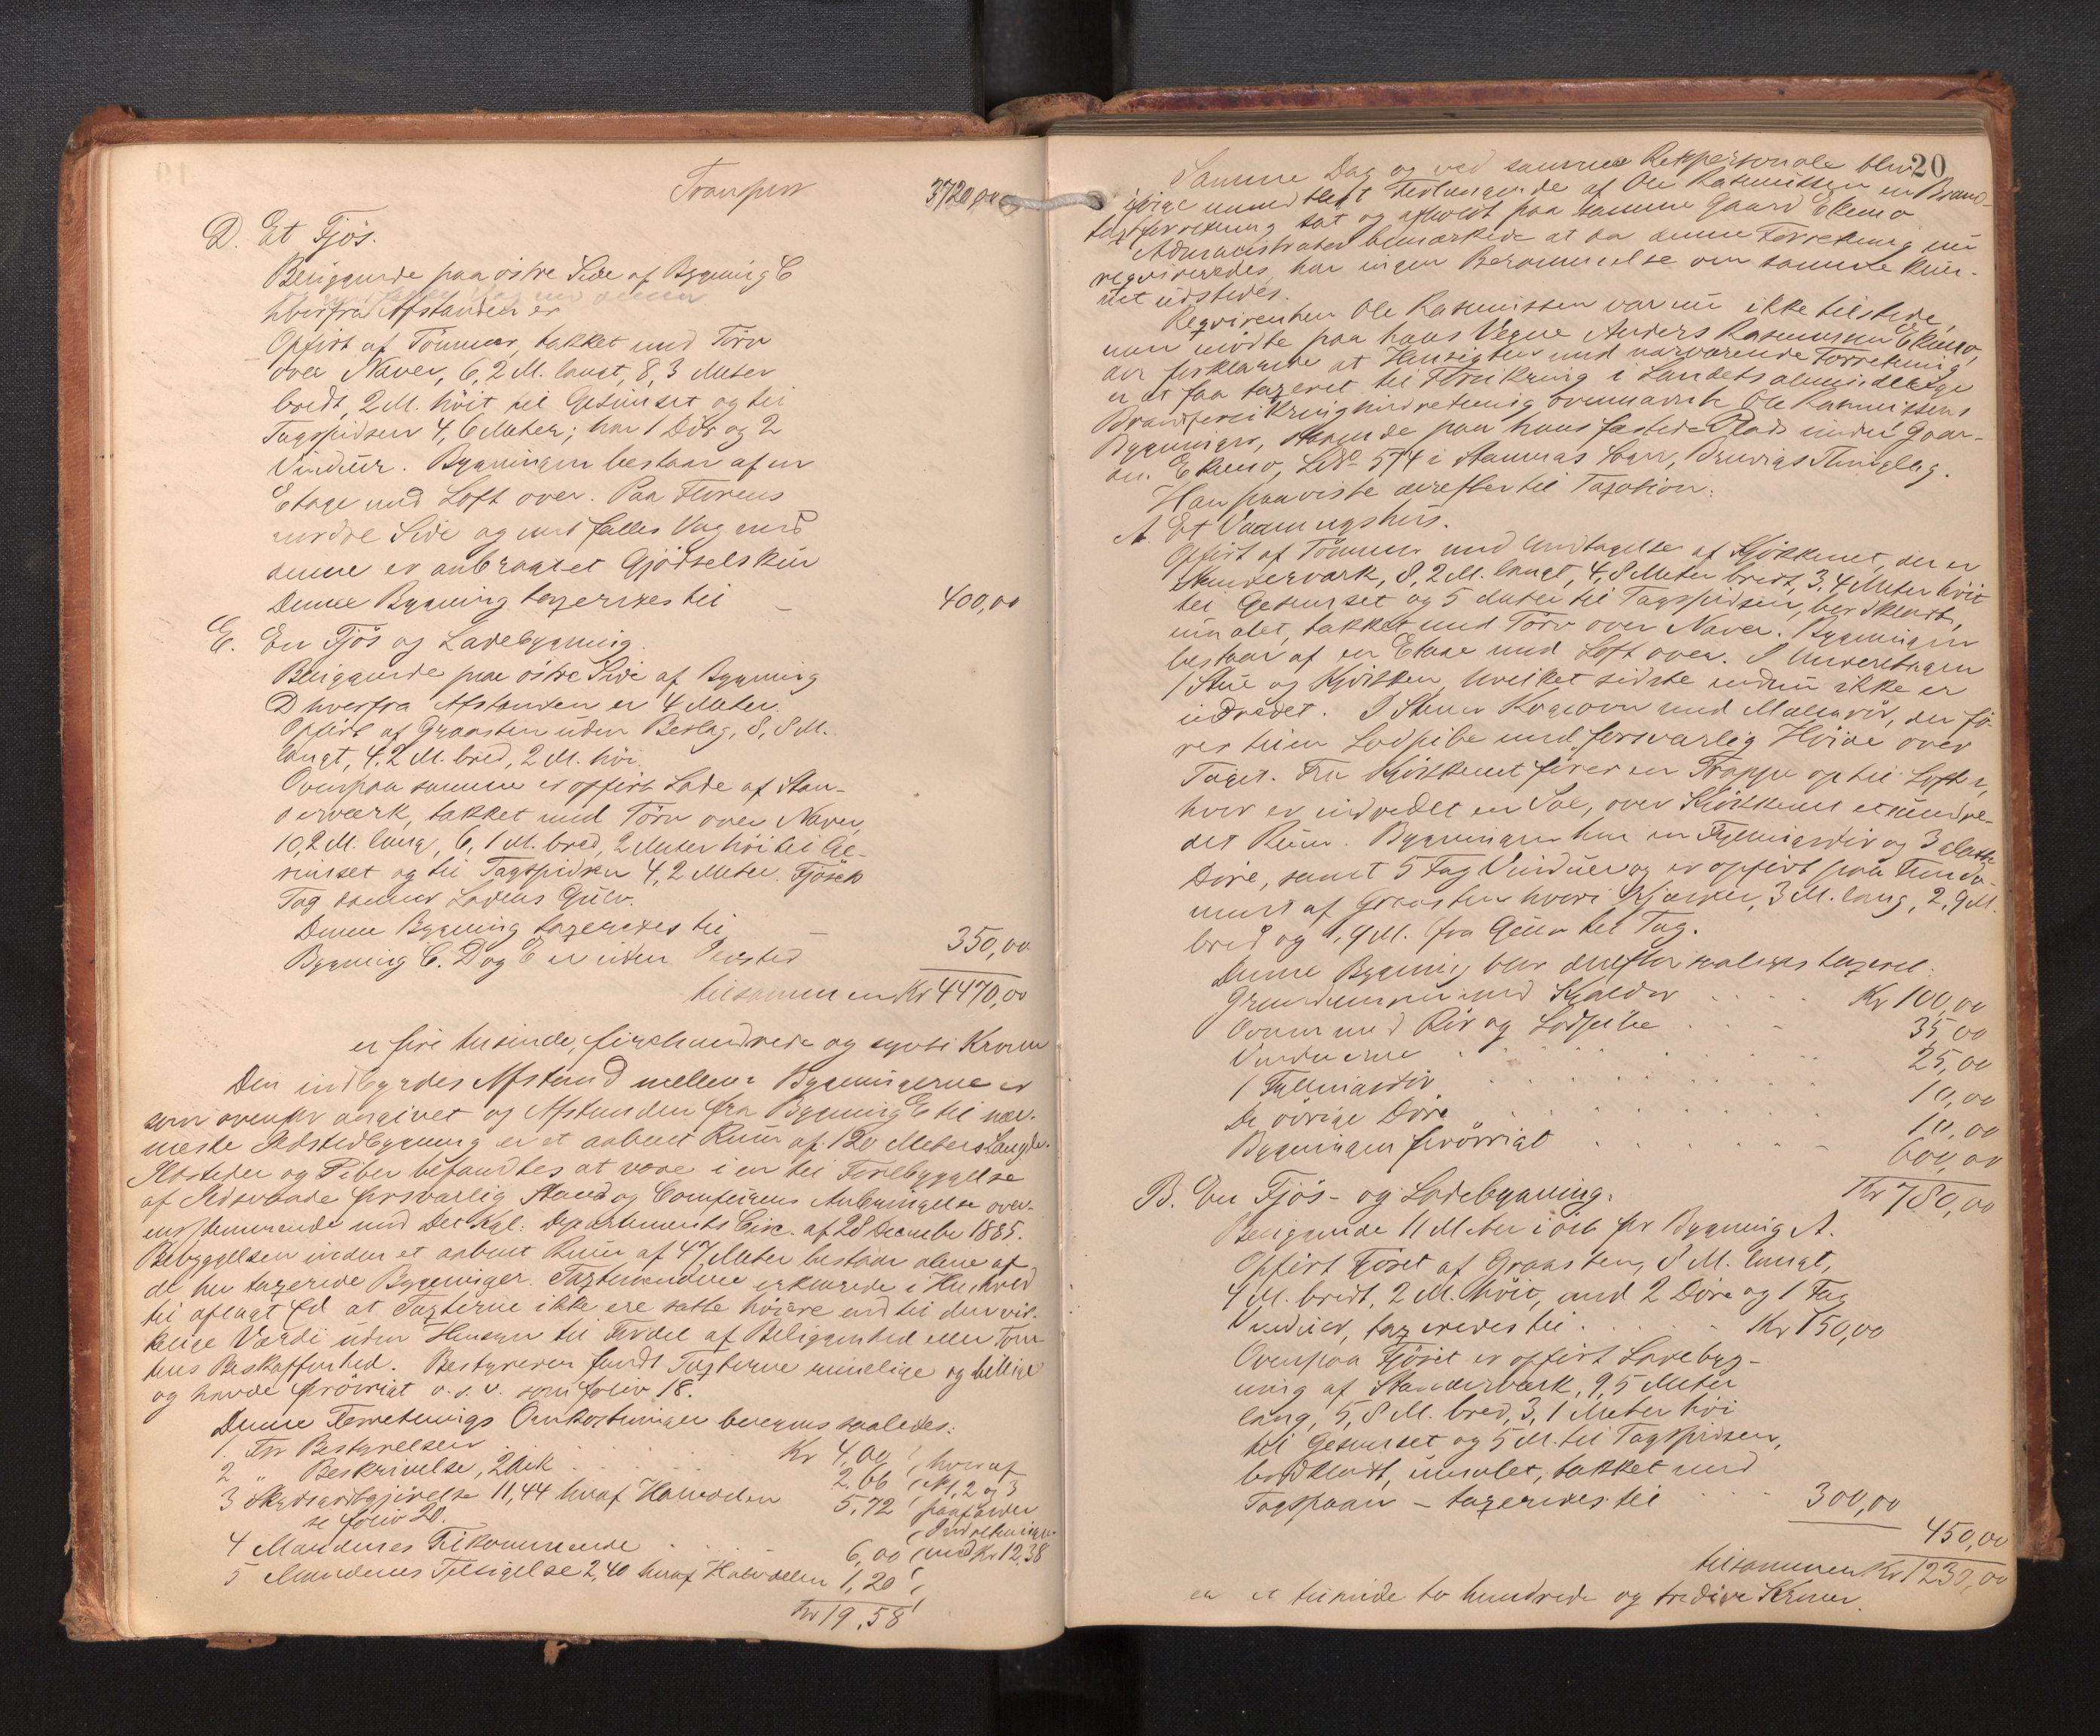 Transport 3720,00
D. Et Fjös.
Beliggende paa östre Side af Bygning C
hvorfra Afstanden er
Opfört af Tömmer, takket med Törv
over Næver, 6,2 M. langt, 8,3 Meter
bredt, 2 M. höit til Gesimset og til
Tagspidsen 4,6 Meter; har 1 Dör og 2
Vinduer. Bygningen bestaar af en
Etage med Loft over. Paa Florens
nordre Side og med fælles Væg med
denne er anbragt et Gjödselskur
Denne Bygning taxeredes til – 400,00
E. En Fjös og Ladebygning.
Beliggende paa östre Side af Bygning
D hvorfra Afstanden er 4 Meter.
Opfört af Graasten uden Beslag, 8,8 M.
langt, 4,2 M. bred, 2 M. höi.
Ovenpaa samme er opfört Lade af Stan-
derværk, takket med Törv over Næver,
10,2 M. lang, 6,1 M. bred, 2 Meter höi til Ge-
simset og til Tagspidsen 4,2 Meter. Fjösets
Tag danner Ladens Gulv.
Denne Bygning taxeredes til – 350,00
Bygning C. D og E er uden Ildsted
tilsammen Kr 4470,00
er fire tusinde, firehundrede og sytti Kroner
Den indbyrdes Afstand mellem Bygningerne er
som ovenfor angivet og Afstanden fra Bygning E til nær-
meste Ildstedbygning er et aabent Rum af 120 Meters Længde.
Ildsteder og Piber befandtes at være i en til Forebyggelse
af Ildsvaade forsvarlig Stand og Comfurens Anbringelse over-
ensstemmende med Det Kgl: Departements Circ. af 28 December 1885.
Bebyggelsen inden et aabent Rum af 47 Meter bestaar alene af
de her taxerede Bygninger. Taxtmændene erklærede i Henhold
til aflagt Ed at Taxterne ikke ere satte höiere end til den vir-
kelige Værdi uden Hensyn til Fordel af Beliggenhed eller Tom-
tens Beskaffenhed. Bestyreren fandt Taxterne rimelige og billige
og havde forövrigt o. s. v. som folio 18.
Denne Forretnings Omkostninger beregnes saaledes:
1. For Bestyrelsen . . . Kr 4,00 ( hvoraf
2 " Beskrivelse, 2 Ark . . . 2,66 ( No 1, 2 og 3
3 Skydsgodtgjörelse 11,44 hvoraf Halvdelen 5,72 ( paaförer
se folio 20. ( Indretningen
4 Mændenes Tilkommende . . . 6,00 ( med Kr 12,38
5 Mændenes Tilsigelse 2,40 hvoraf Halvdelen 1,20 (
Kr 19,58
20
Samme Dag og ved samme Retspersonale blev
ifölge mundtligt Forlangende af Ole Rasmussen en Brand-
taxtforretning sat og afholdt paa samme Gaard Ekemo
Administrator bemærkede at da denne Forretning nu
reqvireredes, har ingen Berammelse om samme kun-
net udstedes.
Reqvirenten Ole Rasmussen var nu ikke tilstede,
men mödte paa hans Vegne Anders Rasmussen Ekemo,
der forklarede at Hensigten med nærværende Forretning
er at faa taxeret til Forsikring i Landets almindelige
Brandforsikringsindretning ovennævnte Ole Rasmussens
Bygninger, staaende paa hans fæstede Plads under Gaar-
den Ekemo, LNo 574 i Stamnæs Sogn, Bruvigs Thinglag.
Han paaviste derefter til Taxation:
A. Et Vaaningshus.
Opfört af Tömmer med Undtagelse af Kjökkenet, der er
Standerværk, 8,2 M. langt, 4,8 Meter bredt, 3,4 Meter höit
til Gesimset og 5 Meter til Tagspidsen, bordklædt,
umalet, takket med Törv over Næver. Bygningen
bestaar af en Etage med Loft over. I Underetagen
1 Stue og Kjökken, hvilket sidste endnu ikke er
indredet. I Stuen Kogeovn med Malmrör, der fö-
res til en Lodpibe med forsvarlig Höide over
Taget. Fra Kjökkenet förer en Trappe op til Loftet,
hvor er indredet en Sal, over Kjökkenet et uindre-
det Rum. Bygningen har en Fyllningsdör og 3 glatte
Döre, samt 5 Fag Vinduer og er opfört paa Funda-
ment af Graasten hvori Kjælder, 3 M. lang, 2,9 M.
bred og 1,9 M. fra Gulv til Tag.
Denne Bygning blev derefter saaledes taxeret:
Grundmuren med Kjælder . . . . Kr 100,00
Ovnen med Rör og Lodpibe . . . 35,00
Vinduerne . . . . 25,00
1 Fyllningsdör . . . . 10,00
De övrige Döre . . . . 10,00
Bygningen forövrigt . . . . 600,00
Kr 780,00
B. En Fjös- og Ladebygning.
Beliggende 11 Meter i öst for Bygning A.
Opfört Fjöset af Graasten, 8 M. langt,
4 M. bredt, 2 M. höit, med 2 Döre og 1 Fag
Vinduer, taxeredes til . . . . Kr 150,00
Ovenpaa Fjöset er opfört Ladebyg-
ning af Standerværk, 9,5 Meter
lang, 5,8 M. bred, 3,1 Meter höi
til Gesimset og 5 M. til Tagspidsen,
bordklædt, umalet, takket med
Tagspaan – taxeredes til . . . 300,00
450,00
tilsammen Kr 1230,00
er et tusinde to hundrede og tredive Kroner.